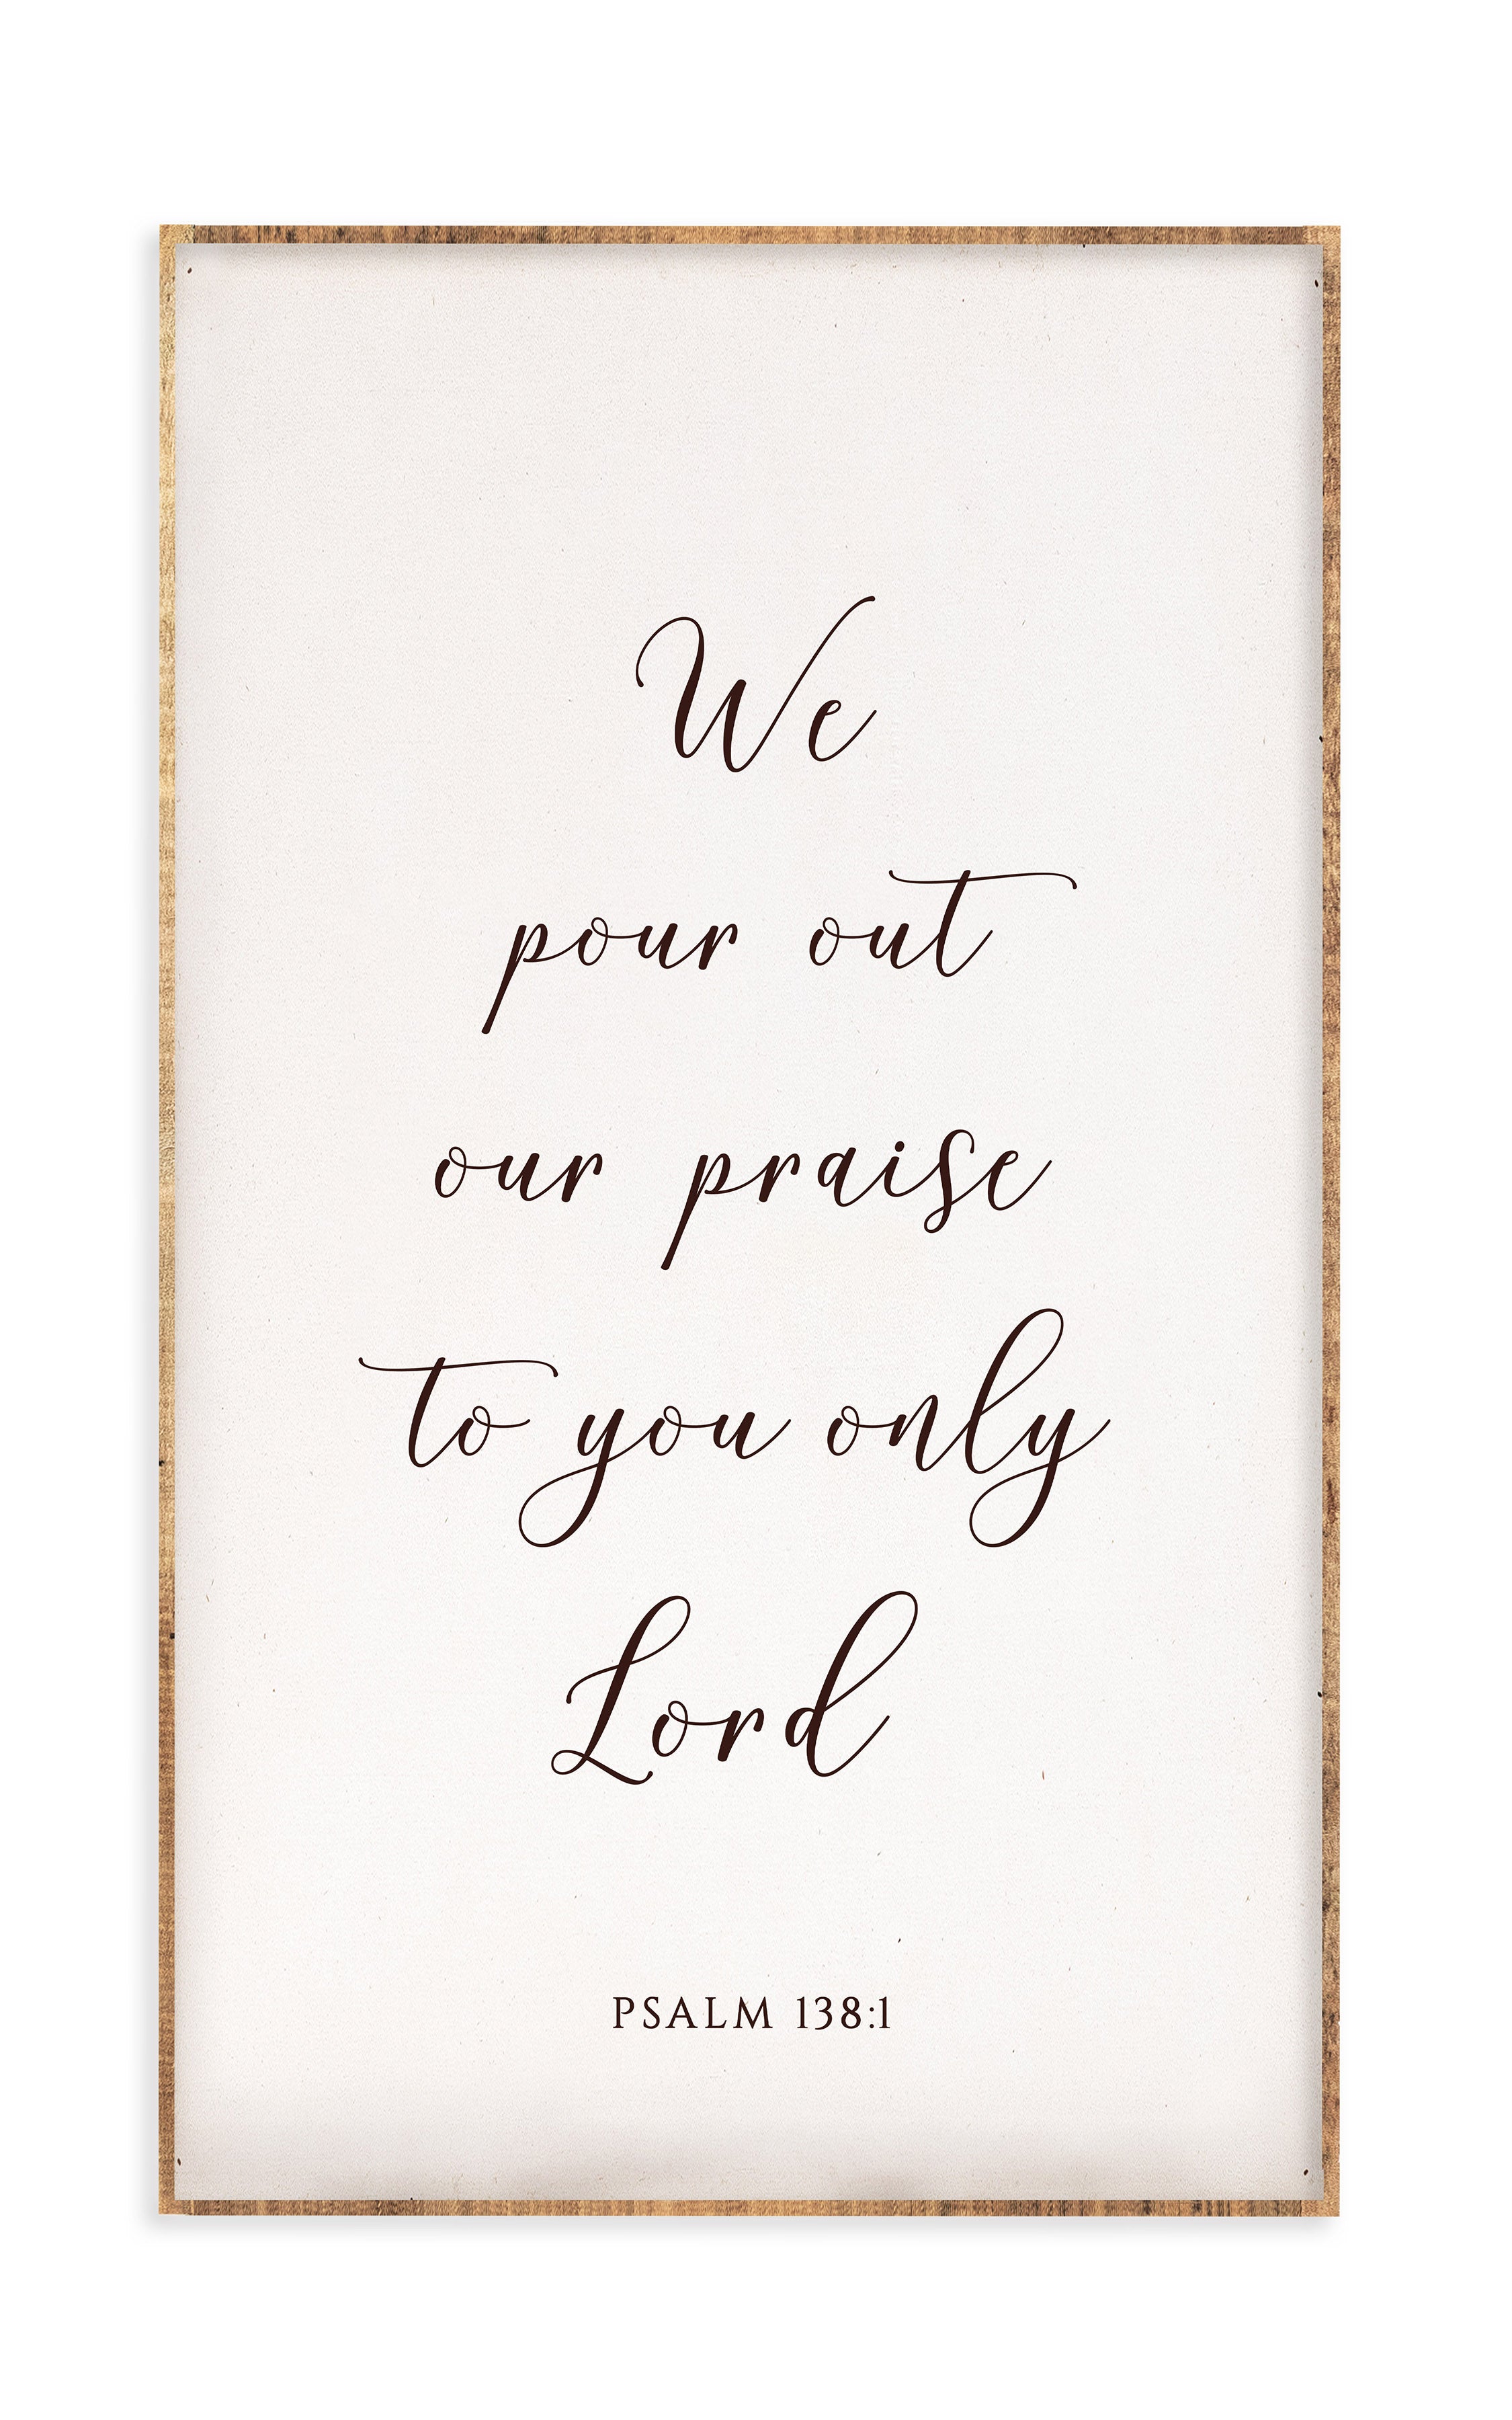 We
pour out
our praise
to you only
Lord
PSALM 138:1